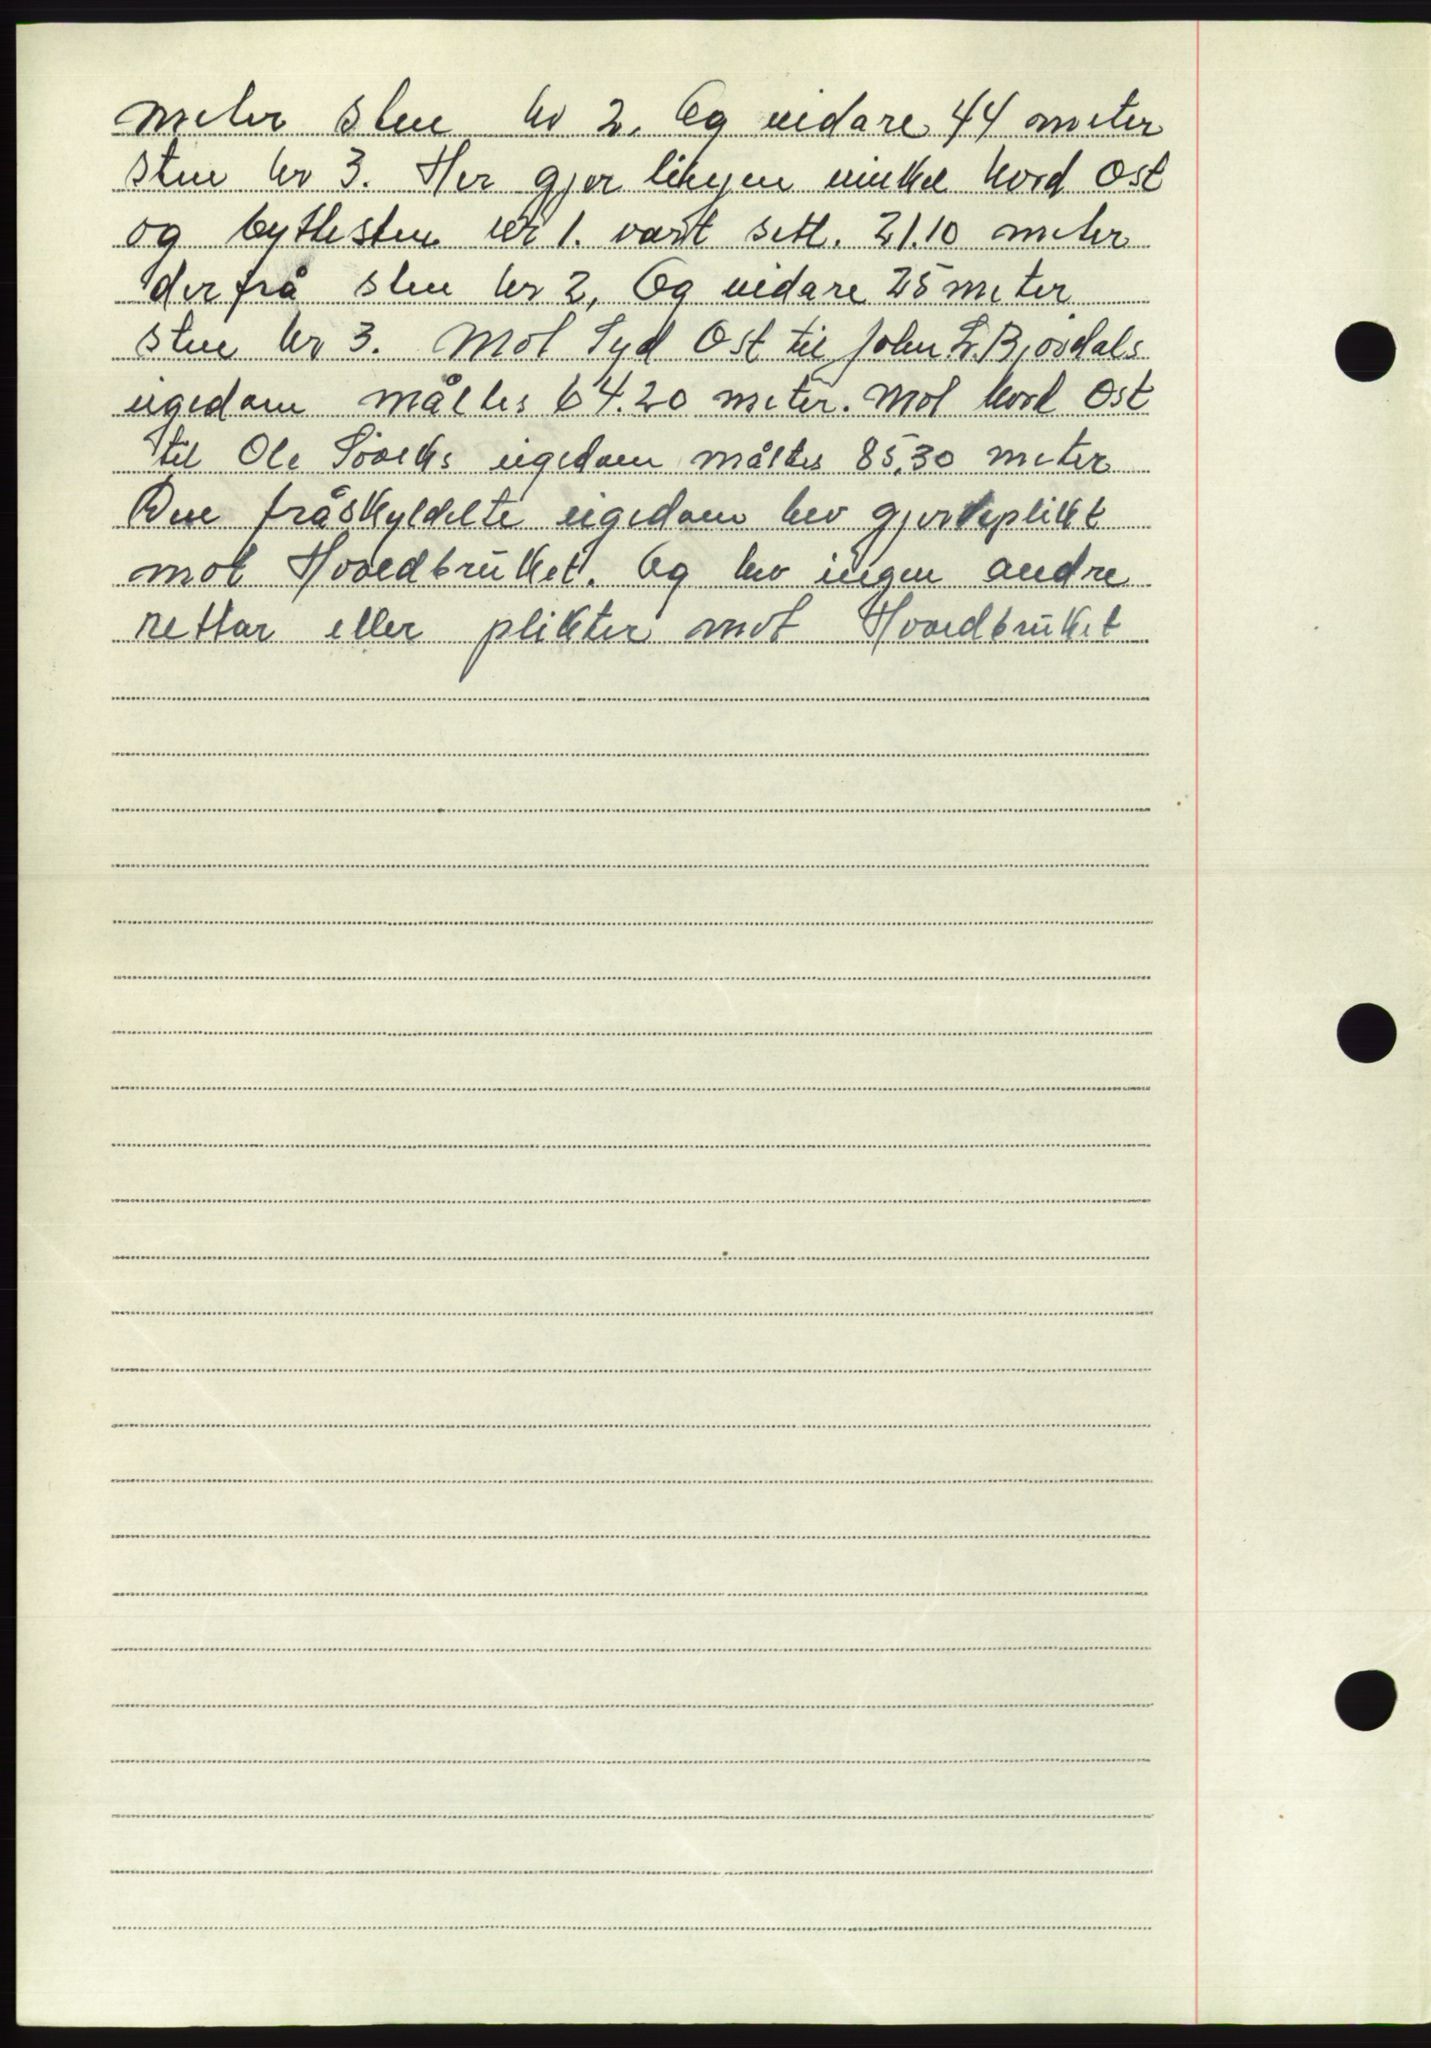 meter sten nr 2. Og vidare 44 meter
sten nr 3. Her gjer linjen vinkel Nord Ost
og byttesten nr 1. vart sett. 21.10 meter
derfrå sten nr 2, Og vidare 25 meter
sten nr 3. Mot Syd Ost til John L. Bjørdals
eigedom måltes 64.20 meter. Mot Nord Ost
til Ole eigedom måltes 85,30 meter
Den fråskyldelte eigedom hev gjerdeplikt
mot Hovedbruket. Og hev ingen andre
rettar eller plikter mot Hovedbruket